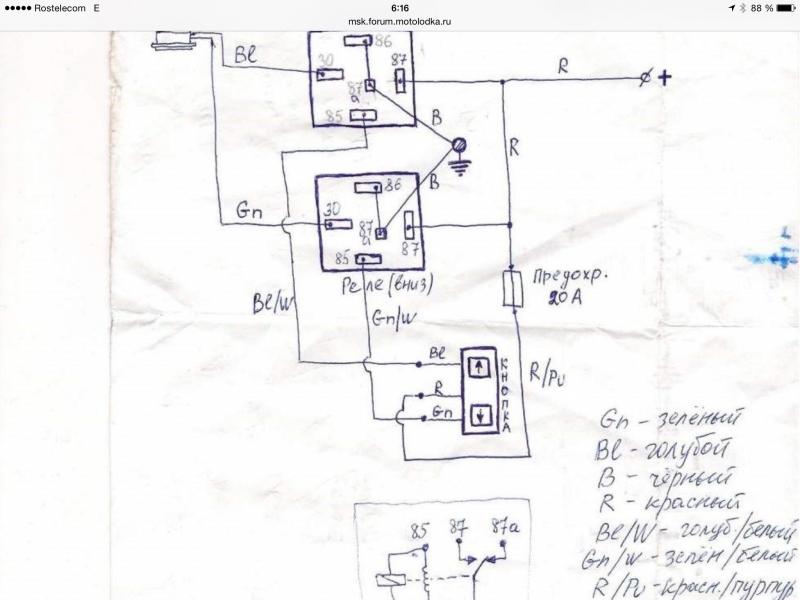 Rostelecom E
6:16
88 %
msk.forum.motolodka.ru
Bl
30
86
87
87a
85
R
+
B
R
B
Gn
30
86
87a
87
85
Реле (вниз)
Предохр.
20А
Bl/W
Gn/W
Bl
R
Gn
КНОПКА
R/Pu
Gn - зелёный
Bl - голубой
B - чёрный
R - красный
Bl/W - голуб/белый
Gn/W - зелён/белый
R/Pu - красн./пурпур
85
87
87a